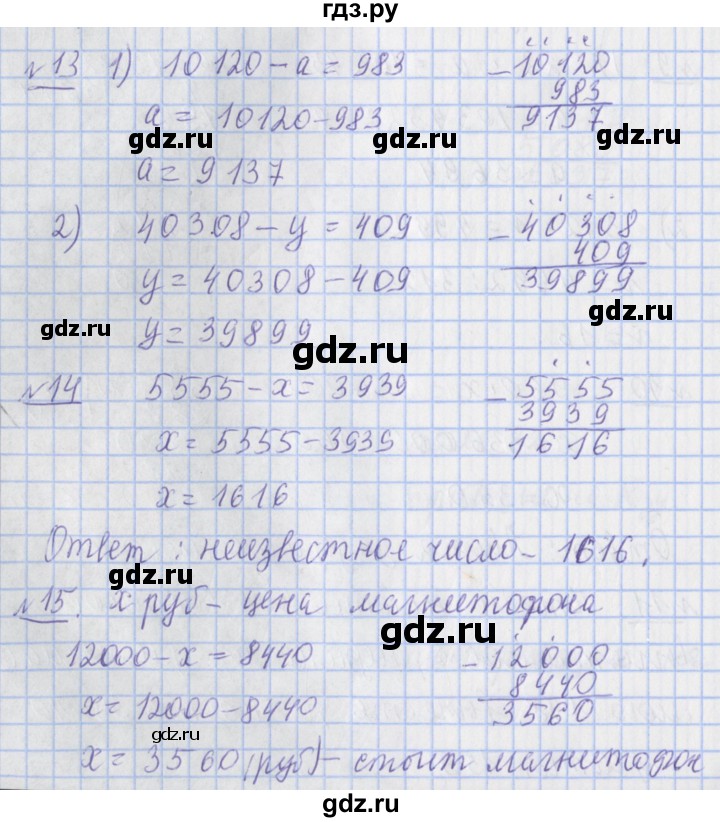 гдз.ру
№13 1) 10120 - a = 983
a = 10120 - 983
a = 9137
- 10120
983
9137
2) 40308 - y = 409
y = 40308 - 409
y = 39899
- 40308
409
39899
№14 5555 - x = 3939
x = 5555 - 3939
x = 1616
- 5555
3939
1616
Ответ: неизвестное число - 1616.
№15. x руб - цена магнитофона
12000 - x = 8440
x = 12000 - 8440
x = 3560 (руб) - стоит магнитофон
- 12000
8440
3560
gdz.ru
gdz.ru
gdz.ru
gdz.ru
gdz.ru
gdz.ru
gdz.ru
gdz.ru
gdz.ru
gdz.ru
gdz.ru
gdz.ru